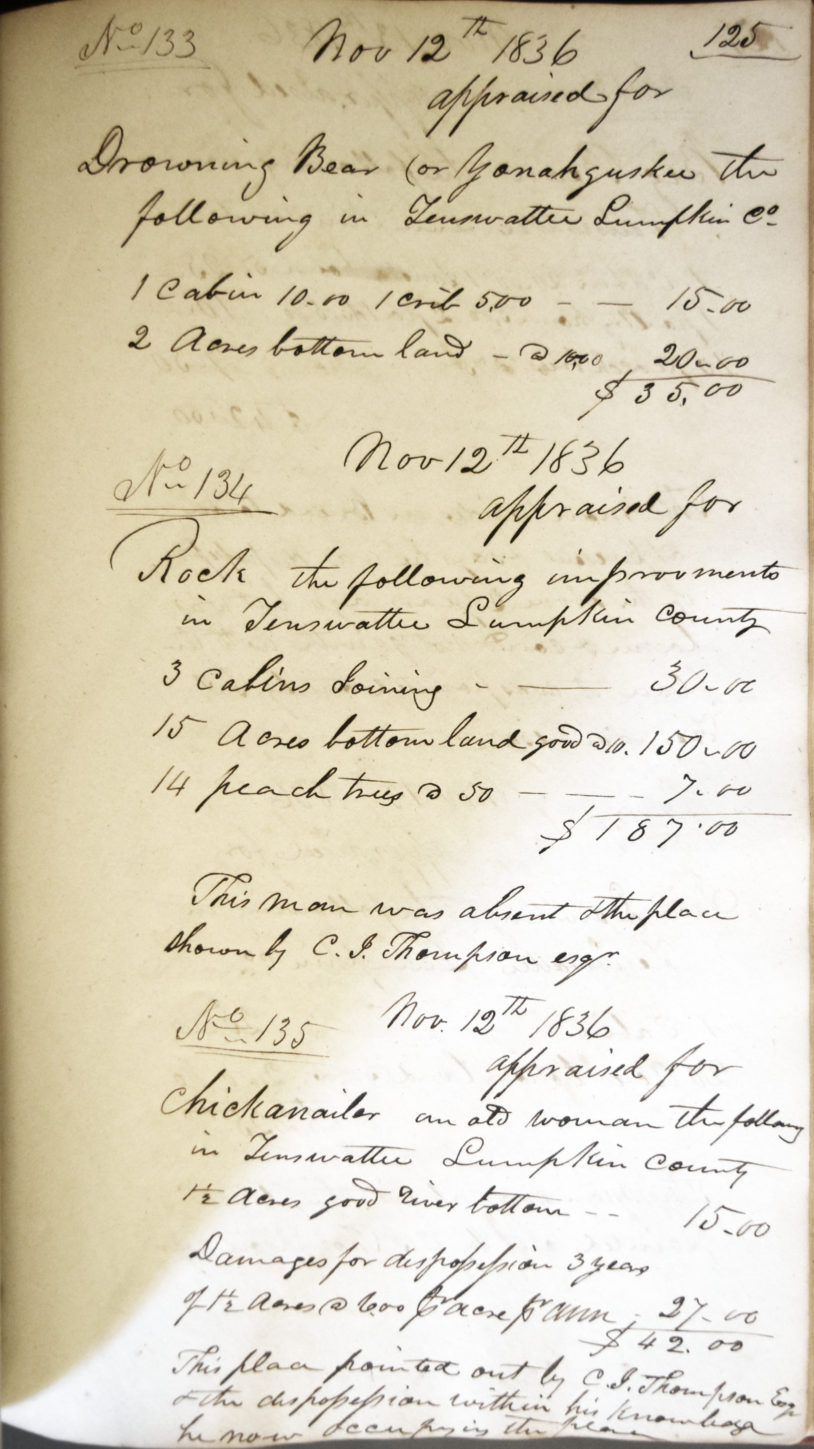 No 133 Nov 12th 1836 125
appraised for
Drowning Bear (or Yonahguskee the
following in Tenswattee Lumpkin Co
1 Cabin 10.00 1 crib 5,00 - — 15.00
2 Acres bottom land - @ 10,00 20.00
$ 35.00
No 134 Nov 12th 1836
appraised for
Rock the following improvments
in Tenswattee Lumpkin County
3 Cabins Joining - — 30.00
15 Acres bottom land good @ 10. 150.00
14 peach trees @ 50 — — - 7.00
$ 187.00
This man was absent & the place
shown by C. J. Thompson esqr.
No 135 Nov. 12th 1836
appraised for
Chickanailer an old woman the following
in Tenswattee Lumpkin County
1½ Acres good river bottom - - 15.00
Damages for dispossession 3 years
of 1½ Acres @ 6.00 pr acre pr ann. 27.00
$ 42.00
This place pointed out by C. J. Thompson Esqr
& the dispossession within his knowledge
he now occupying the place